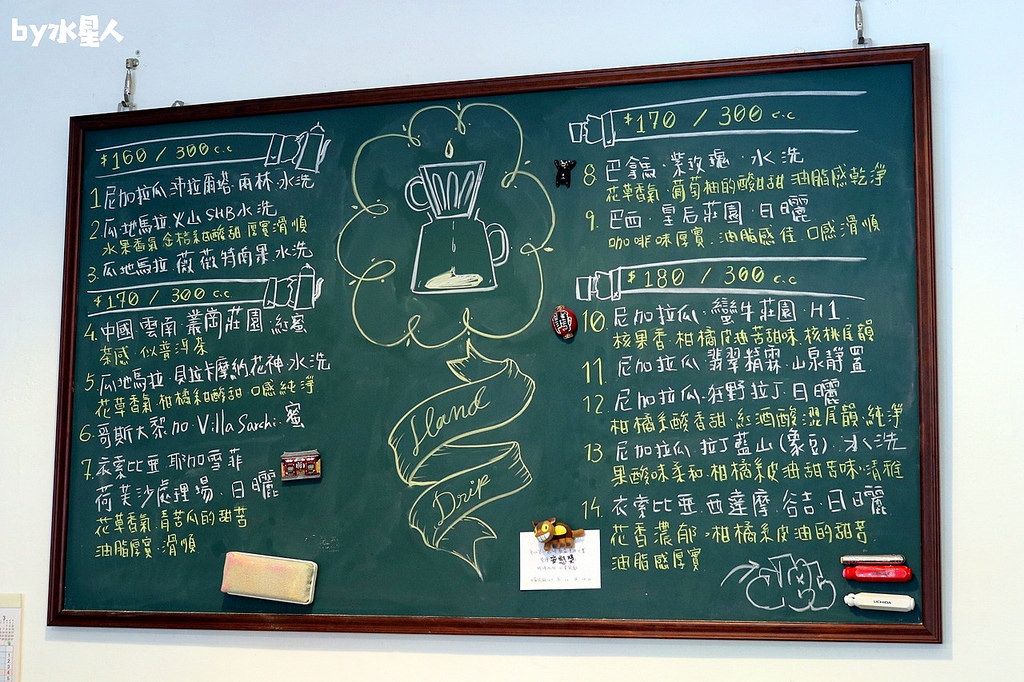 by水星人
$160 / 300 c.c
1 尼加拉瓜.沛拉爾塔.雨林.水洗
2. 瓜地馬拉.火山 SHB 水洗
水果香氣 金桔系的酸甜 厚實滑順
3. 瓜地馬拉 薇薇特南果.水洗
$170 / 300 c.c.
4. 中國.雲南.叢崗莊園.紅蜜
茶感 似普洱茶
5. 瓜地馬拉.貝拉卡摩納花神.水洗
花草香氣.柑橘系的酸甜.口感純淨
6. 哥斯大黎加.Villa Sarchi.蜜
7. 衣索比亞.耶加雪菲
荷芙沙處理場.日曬
花草香氣.青苦瓜的甜苦
油脂厚實.滑順
Hand
Drip
$170 / 300 c.c.
8 巴拿馬.紫玫瑰.水洗
花草香氣.葡萄柚的酸甜甜 油脂感乾淨
9. 巴西.皇后莊園.日曬
咖啡味厚實.油脂感佳.口感滑順
$180 / 300 c.c.
10. 尼加拉瓜.蠻牛莊園.H1
核果香.柑橘皮油苦甜味.核桃尾韻
11. 尼加拉瓜.翡翠精靈.山泉靜置
12. 尼加拉瓜.狂野拉丁.日曬
柑橘系酸香甜.紅酒酸澀尾韻.純淨
13. 尼加拉瓜.拉丁藍山(象豆).水洗
果酸味柔和.柑橘系皮油甜苦味.清雅
14. 衣索比亞.西達摩.谷吉.日曬
花香濃郁,柑橘系皮油的甜苦
油脂感厚實
UCHIDA